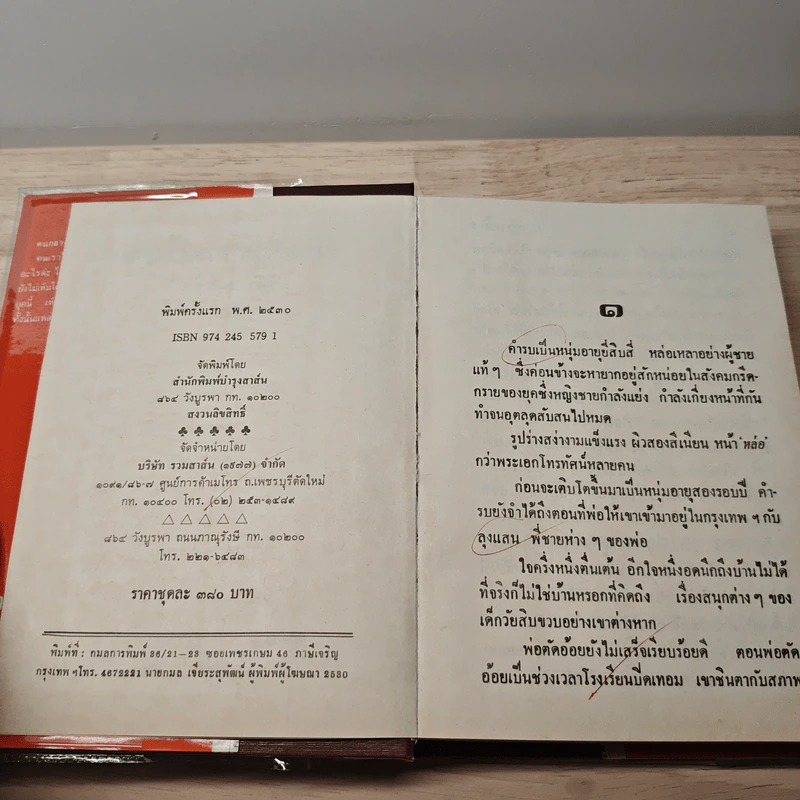 คนกลา
คนเรา
อะไรล่ะ
ยังไม่เห็นได้
ยุคนี้
พิมพ์ครั้งแรก พ.ศ. ๒๕๓๐
ISBN 974 245 579 1
จัดพิมพ์โดย
สำนักพิมพ์บำรุงสาส์น
๘๖๔ วังบูรพา กท. ๑๐๒๐๐
สงวนลิขสิทธิ์
จัดจำหน่ายโดย
บริษัท รวมสาส์น (๑๙๗๗) จำกัด
๑๐๙๑/๘๖-๗ ศูนย์การค้าเมโทร ถ.เพชรบุรีตัดใหม่
กท. ๑๐๔๐๐ โทร. (๐๒) ๒๕๓-๑๔๘๙
๘๖๔ วังบูรพา ถนนภาณุรังษี กท. ๑๐๒๐๐
โทร. ๒๒๑-๖๔๘๓
ราคาชุดละ ๓๘๐ บาท
พิมพ์ที่ : กมลการพิมพ์ 36/21-23 ซอยเพชรเกษม 46 ภาษีเจริญ
กรุงเทพ ฯโทร. 4672221 นายกมล เจียระสุพัฒน์ ผู้พิมพ์ผู้โฆษณา 2530
๑
คำรบเป็นหนุ่มอายุยี่สิบสี่ หล่อเหลาอย่างผู้ชาย
แท้ ๆ ซึ่งค่อนข้างจะหายากอยู่สักหน่อยในสังคมกรีด-
กรายของยุคซึ่งหญิงชายกำลังแย่ง กำลังเกี่ยงหน้าที่กัน
ทำจนอุตลุดสับสนไปหมด
รูปร่างสง่างามแข็งแรง ผิวสองสีเนียน หน้า 'หล่อ'
กว่าพระเอกโทรทัศน์หลายคน
ก่อนจะเติบโตขึ้นมาเป็นหนุ่มอายุสองรอบปี คำ-
รบยังจำได้ถึงตอนที่พ่อให้เขาเข้ามาอยู่ในกรุงเทพ ฯ กับ
ลุงแสน พี่ชายห่าง ๆ ของพ่อ
ใจครึ่งหนึ่งตื่นเต้น อีกใจหนึ่งอดนึกถึงบ้านไม่ได้
ที่จริงก็ไม่ใช่บ้านหรอกที่คิดถึง เรื่องสนุกต่าง ๆ ของ
เด็กวัยสิบขวบอย่างเขาต่างหาก
พ่อตัดอ้อยยังไม่เสร็จเรียบร้อยดี ตอนพ่อตัด
อ้อยเป็นช่วงเวลาโรงเรียนปิดเทอม เขาชินตากับสภาพ